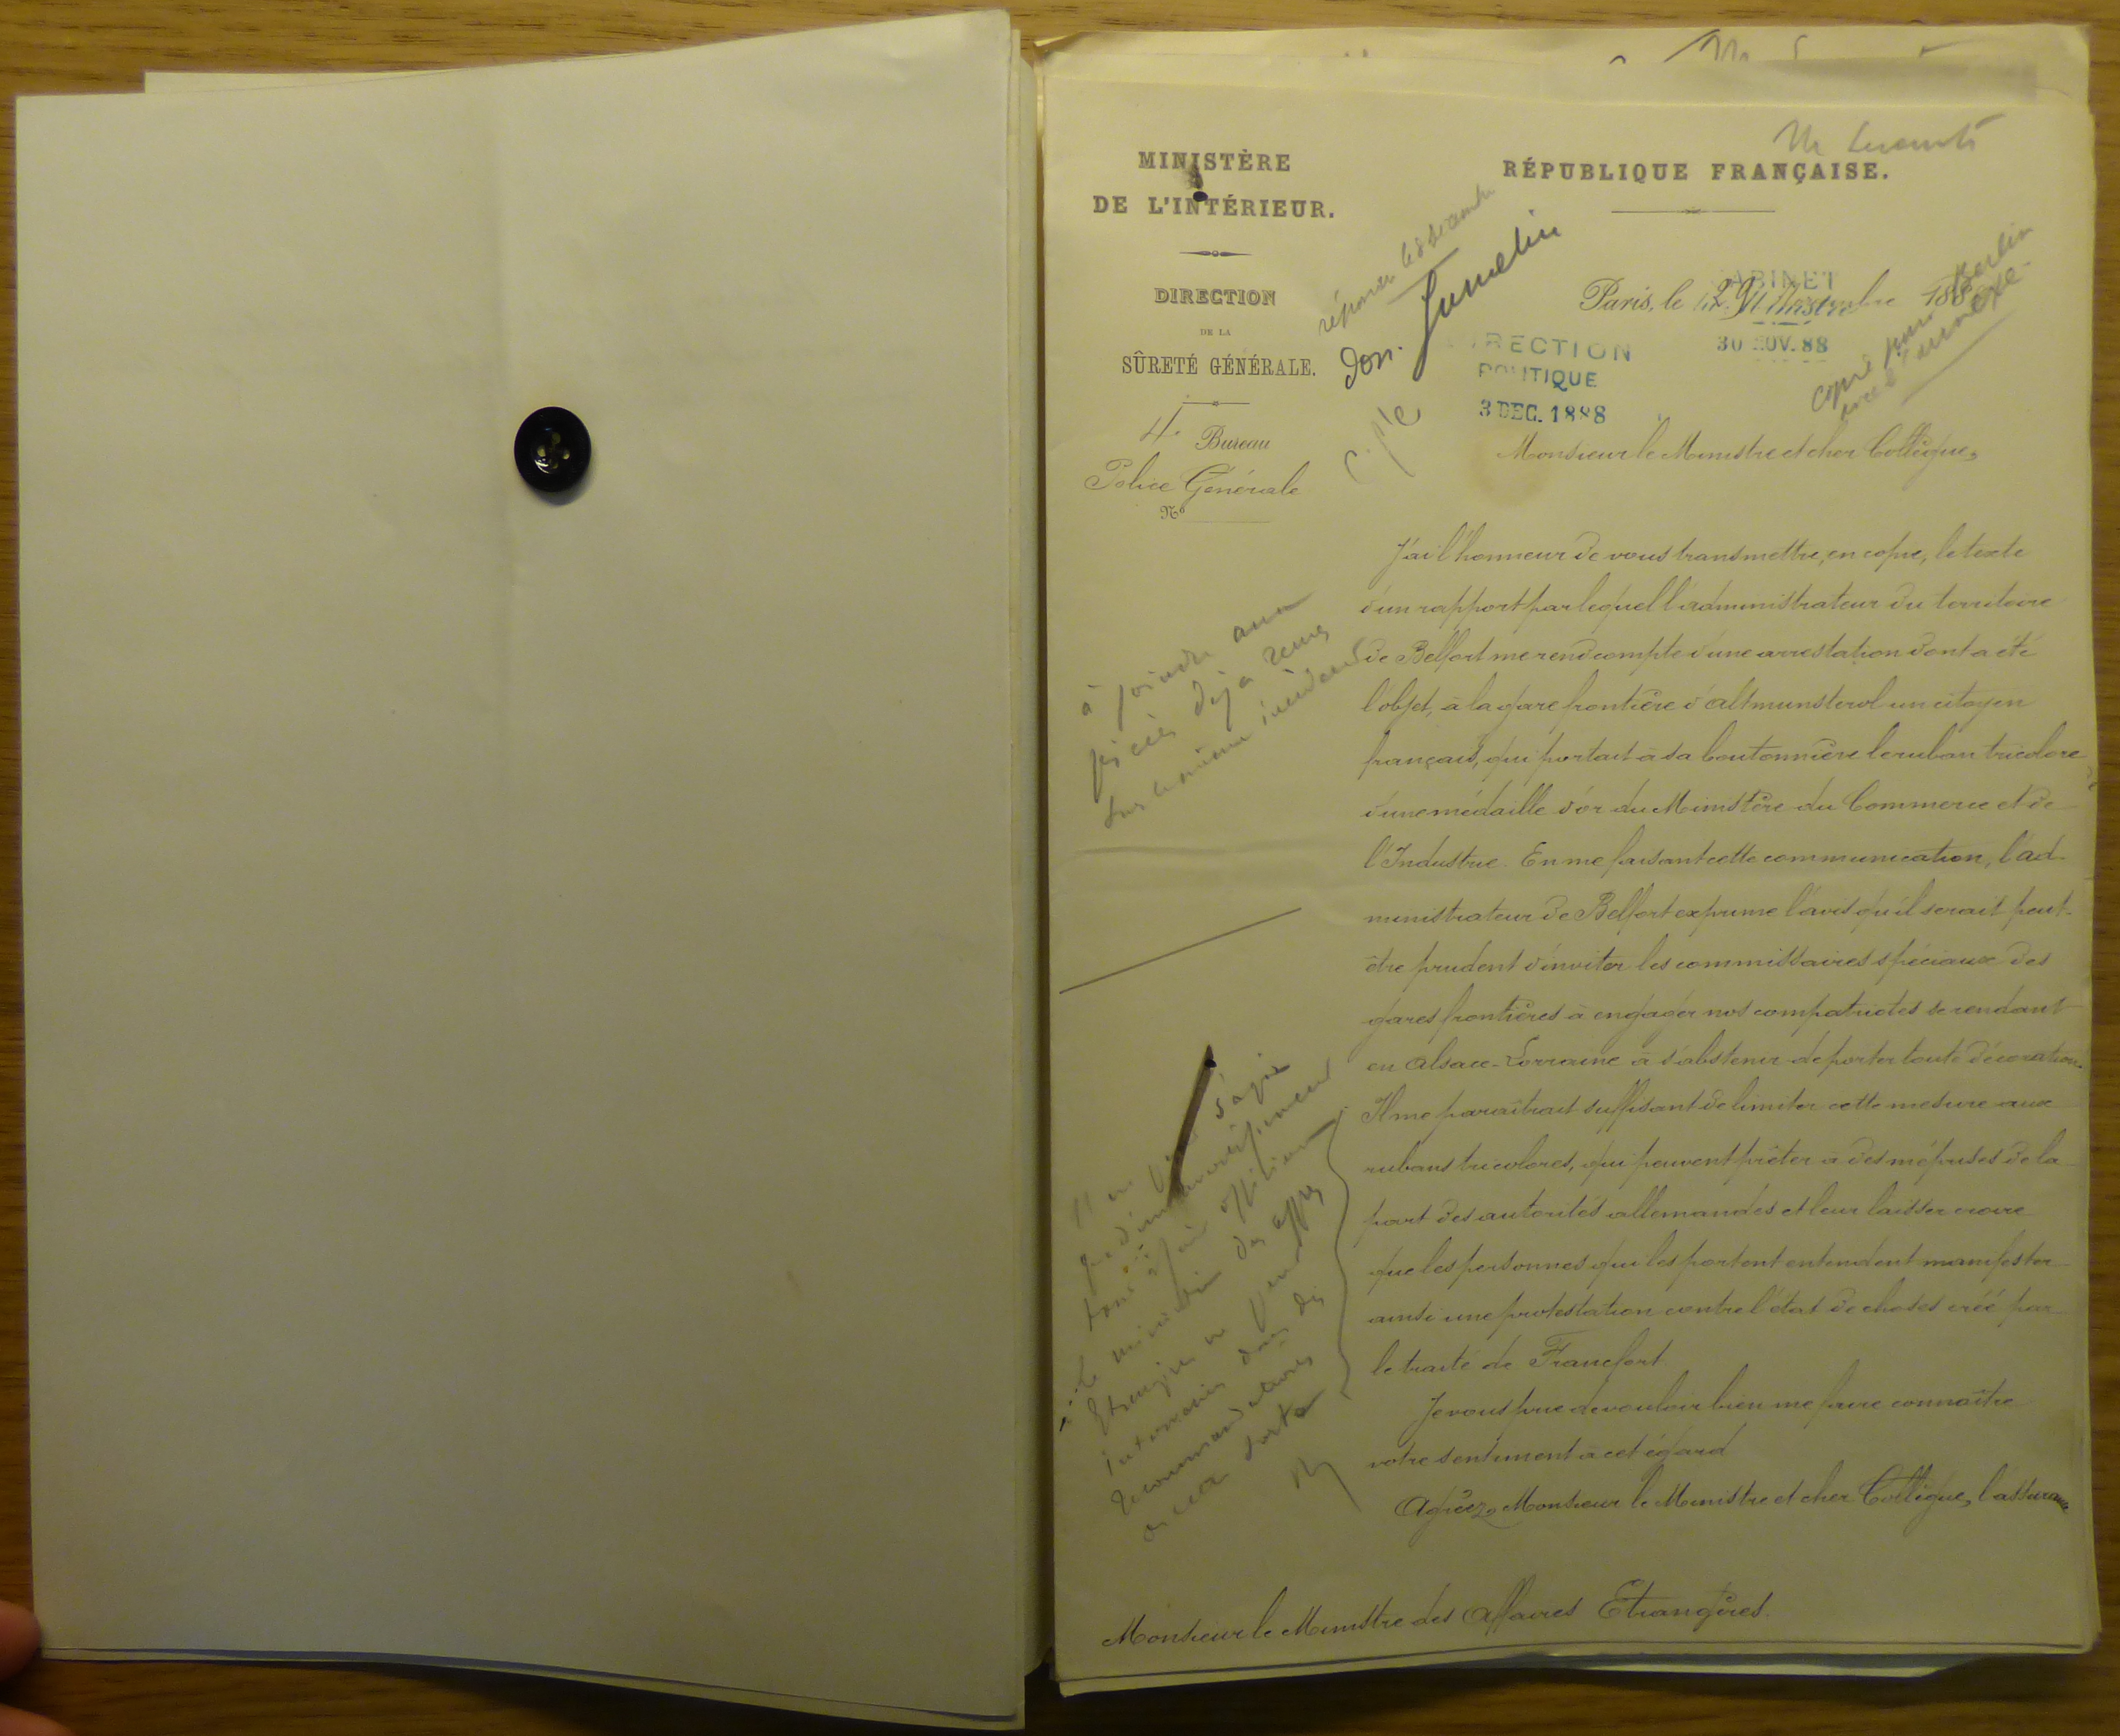 MINISTÈRE
DE L'INTÉRIEUR.
DIRECTION
DE LA
SÛRETÉ GÉNÉRALE.
4e Bureau
Police Générale
No
RÉPUBLIQUE FRANÇAISE.
réponse le 8 décembre
don. Jumelin
CABINET
Paris, le 29 Novembre 188
30 NOV. 88
DIRECTION
POLITIQUE
3 DEC. 1888
copie pour Berlin
avec l'annexe
Monsieur le Ministre et cher Collègue,
J'ai l'honneur de vous transmettre, en copie, le texte
d'un rapport par lequel l'administrateur du territoire
de Belfort me rend compte d'une arrestation dont a été
l'objet, à la gare frontière d'Altmunsterol un citoyen
français, qui portait à sa boutonnière le ruban tricolore
d'une médaille d'or du Ministère du Commerce et de
l'Industrie. En me faisant cette communication, l'ad-
ministrateur de Belfort exprime l'avis qu'il serait peut-
être prudent d'inviter les commissaires spéciaux des
gares frontières à engager nos compatriotes se rendant
en Alsace-Lorraine à s'abstenir de porter toute décoration.
Il me paraîtrait suffisant de limiter cette mesure aux
rubans tricolores, qui peuvent prêter à des méprises de la
part des autorités allemandes et leur laisser croire
que les personnes qui les portent entendent manifester
ainsi une protestation contre l'état de choses créé par
le traité de Francfort.
Je vous prie de vouloir bien me faire connaître
votre sentiment à cet égard
Agréez, Monsieur le Ministre et cher Collègue, l'assurance
Monsieur le Ministre des Affaires Etrangères.
à joindre aux
pièces déjà reçues
sur le même incident
s'agir
officieux
le ministre des Aff.
Etrangères ne peut
intervenir dans des
recommandations
de cette sorte